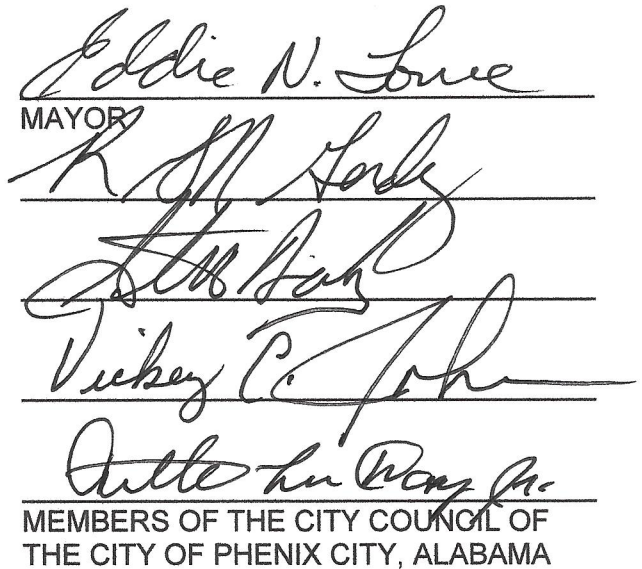 Eddie N. Lowe
MAYOR
R M Gordy
Vickey C. Joh
Arthur L. Day, Jr.
MEMBERS OF THE CITY COUNCIL OF
THE CITY OF PHENIX CITY, ALABAMA